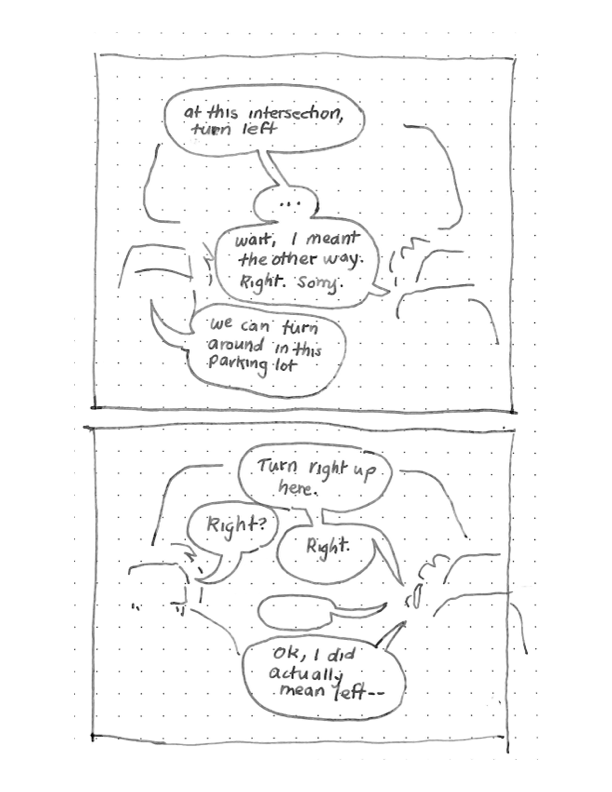 at this intersection,
turn left
...
wait, I meant
the other way.
Right. Sorry.
we can turn
around in this
parking lot
Turn right up
here.
Right?
Right.
Ok, I did
actually
mean left--